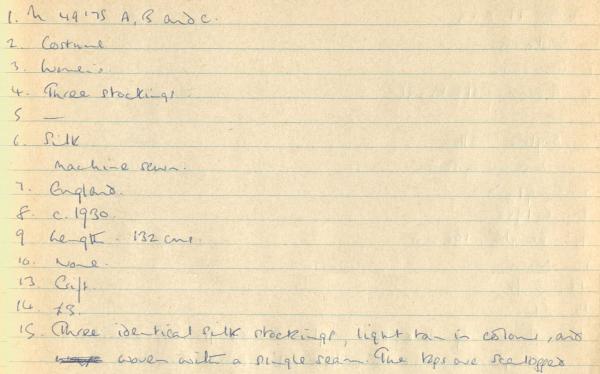 1. M 49'75 A, B and C.
2. Costume
3. Women's.
4. Three stockings.
5 —
6. Silk
Machine sewn.
7. England.
8. c. 1930.
9 Length. 132 cms.
10. None.
13. Gift.
14. £3.
15. Three identical silk stockings, light tan in colour, and
woven with a single seam. The tops are scalloped